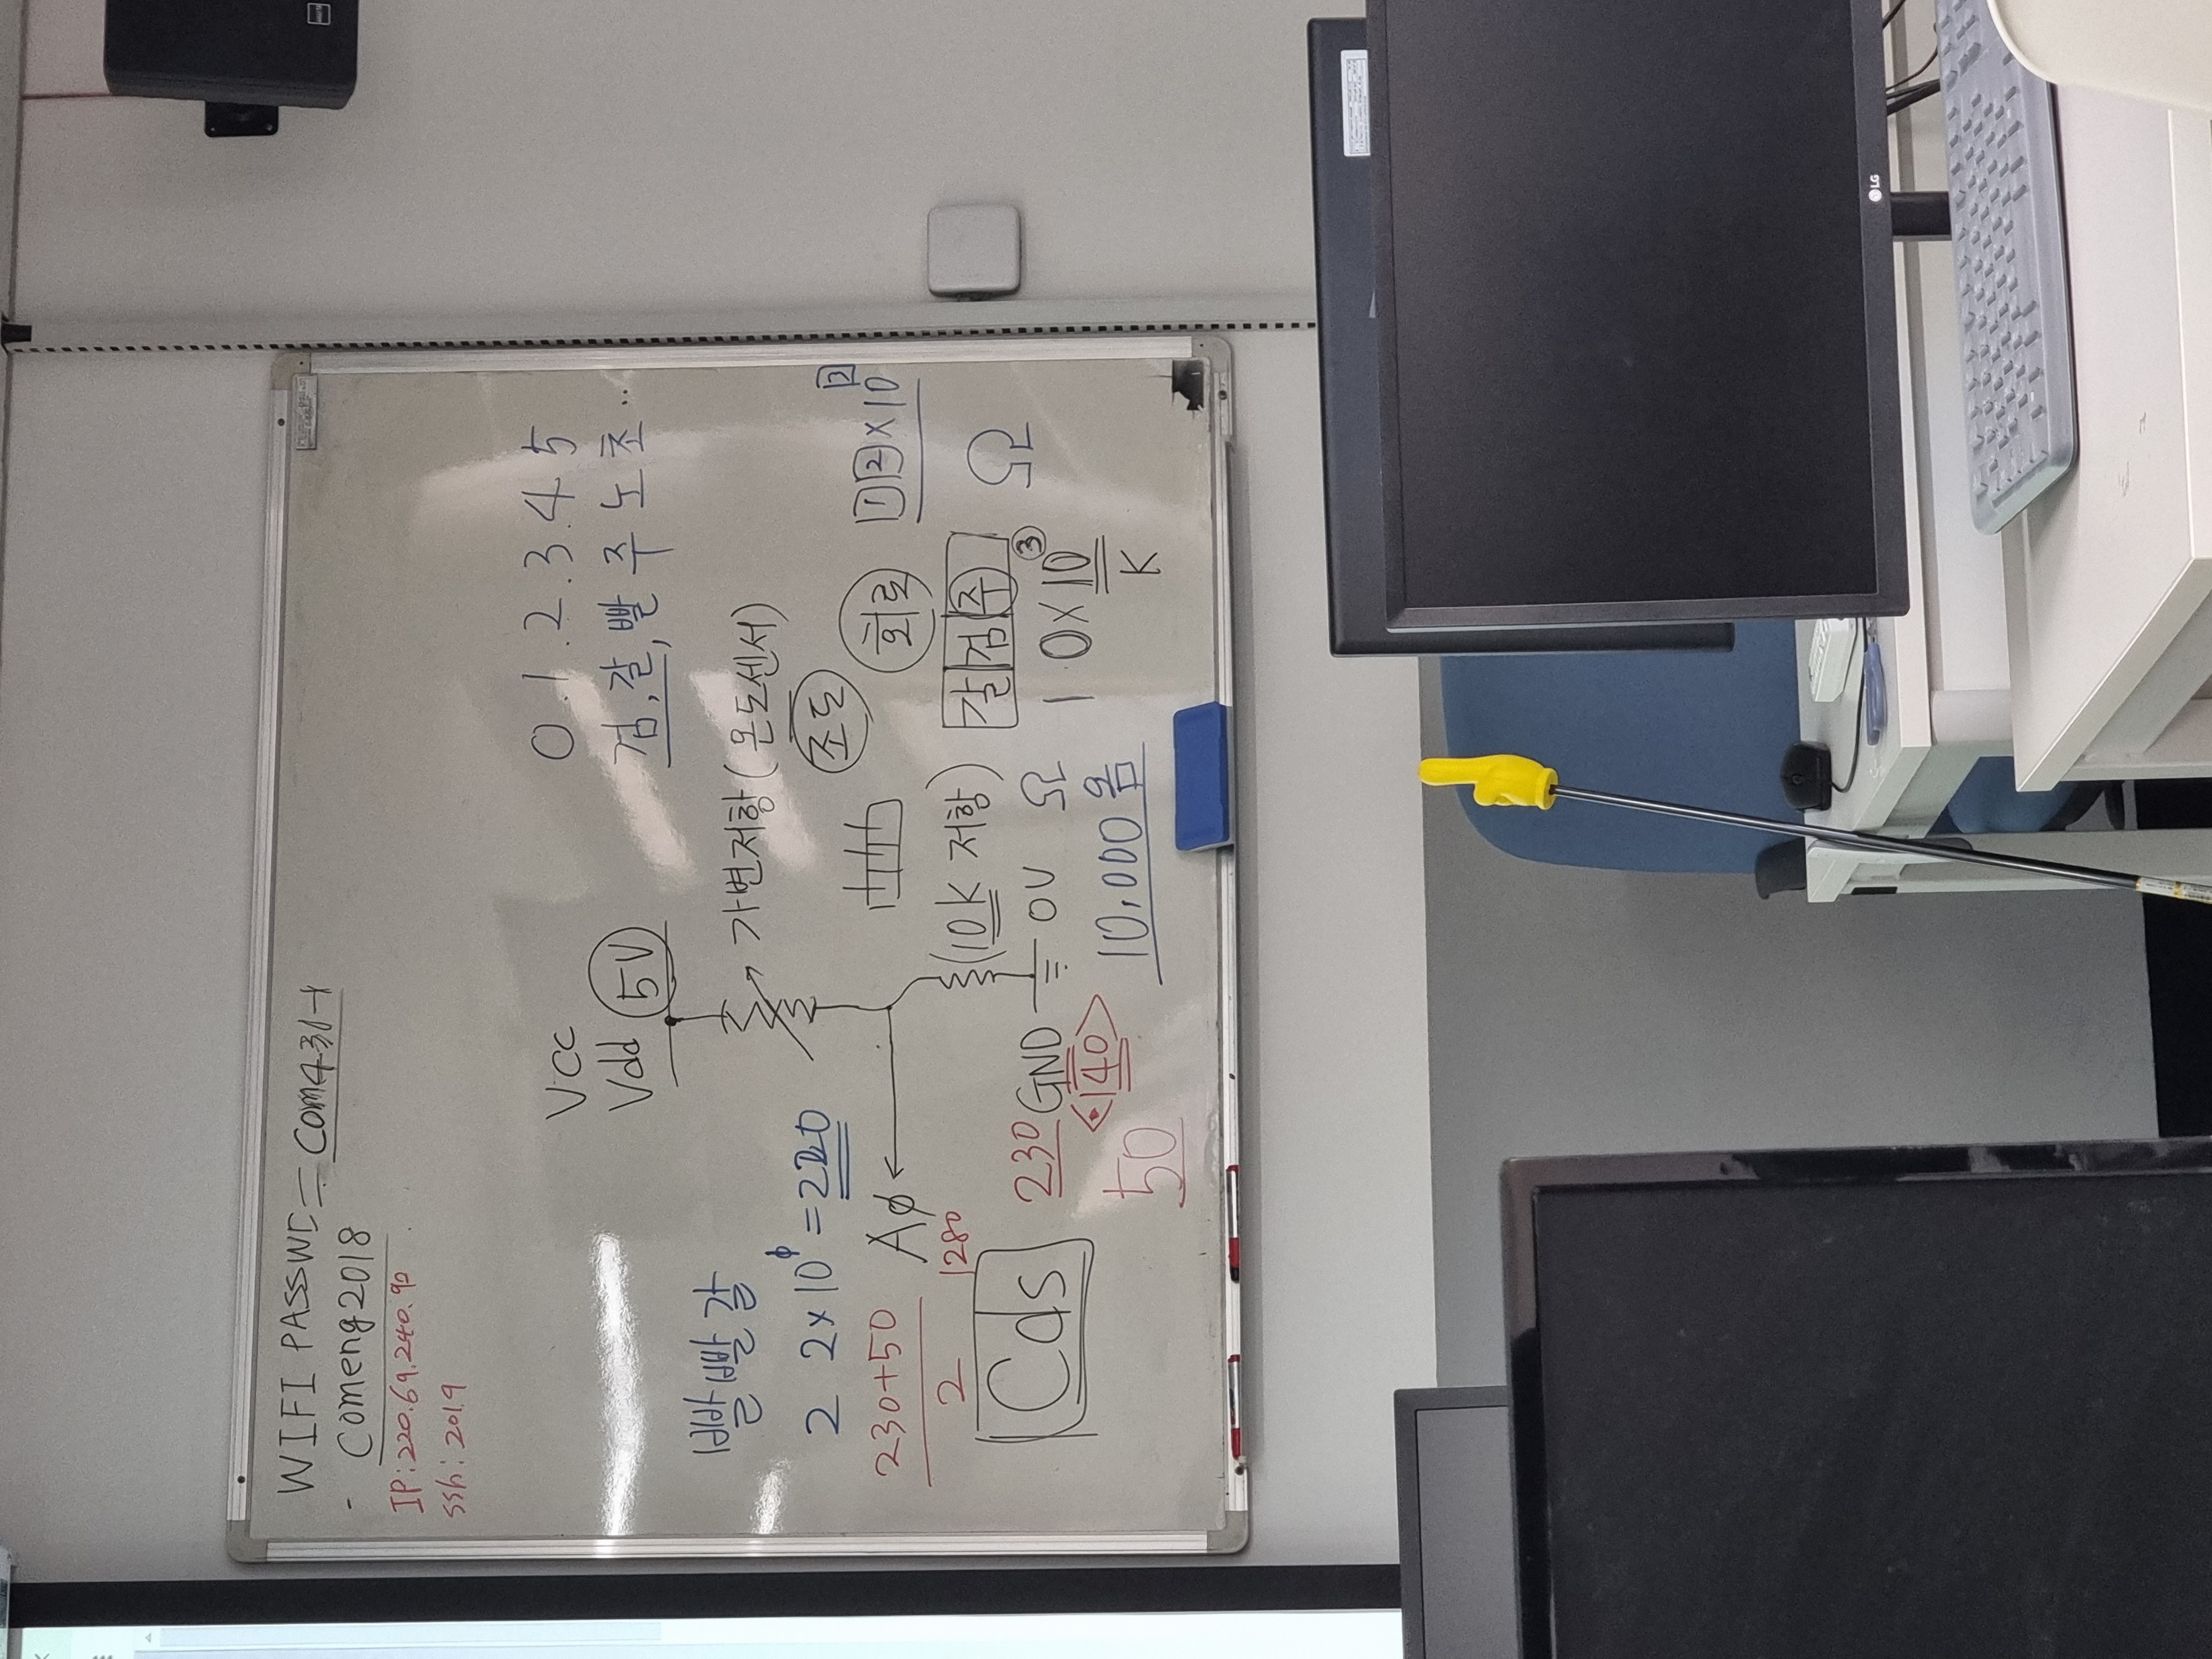 WIFI PASSWD = Com431-1
- Comeng2018
IP: 220.69.240.90
ssh: 2019
Vcc
Vdd 5V
0.1.2.3.4.5
검,갈,빨 주 노 초..
빨 빨 갈
2 2x10 = 220
가변저항 (온도센서)
조도
회로
1 2 x 10 3
230+50
2
Aϕ
1280
Cds
(10K 저항)
갈 검 주
Ω
230
GND
0V
Ω
1 0 x 10 3
K
<140>
50
10,000 옴
LG